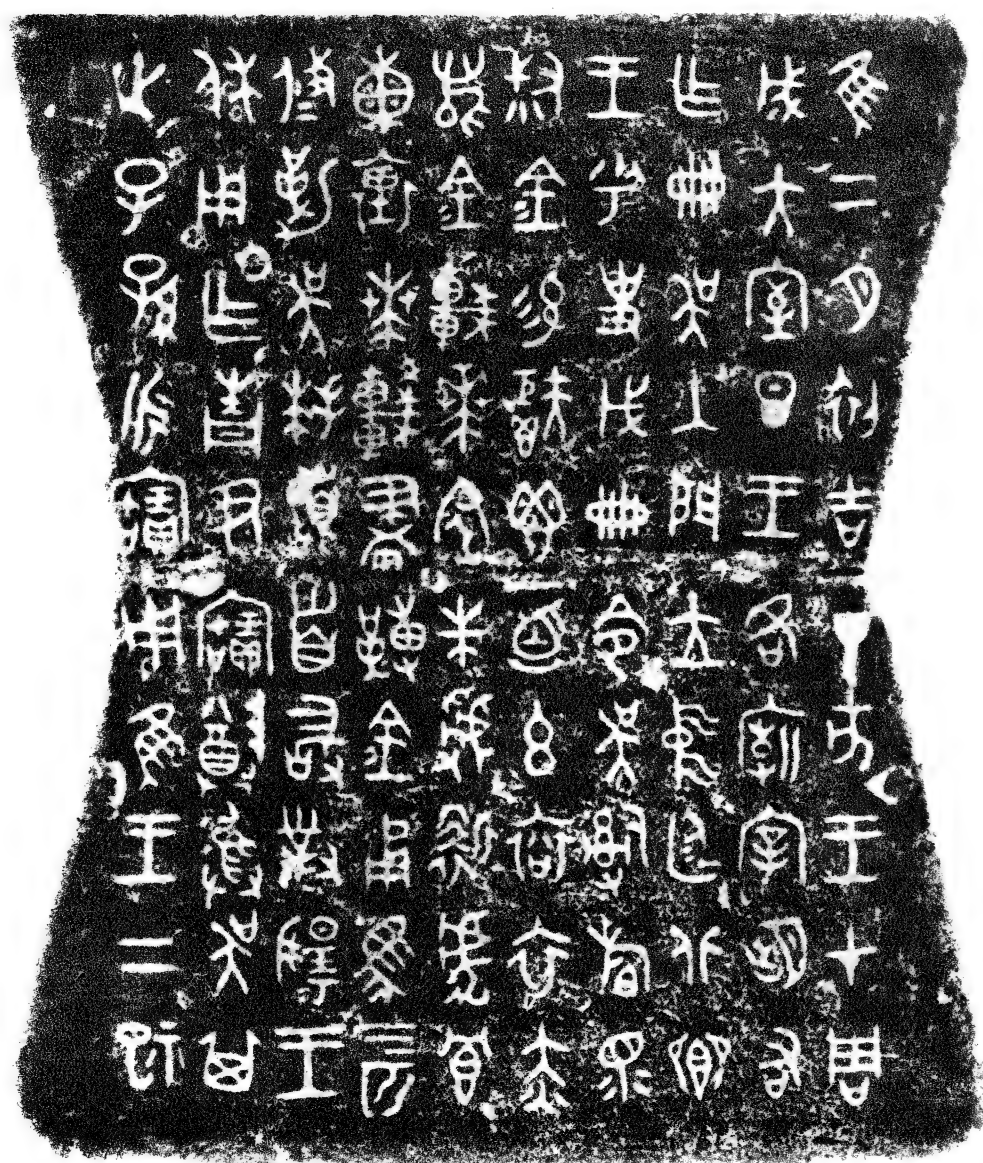 隹二月初吉丁亥王才周
成大室旦王各廟宰朏右
乍冊吳入門立中廷北鄉
王乎史戊冊令吳𤔲旃眔
叔金易秬鬯一卣玄袞衣赤
舄金車𠦪朱虢靳虎冟
熏裏𠦪較畫轉金甬馬四匹
攸勒吳拜𩒨首敢對揚王
休用乍青尹寶尊彝吳其
世子孫永寶用隹王二祀